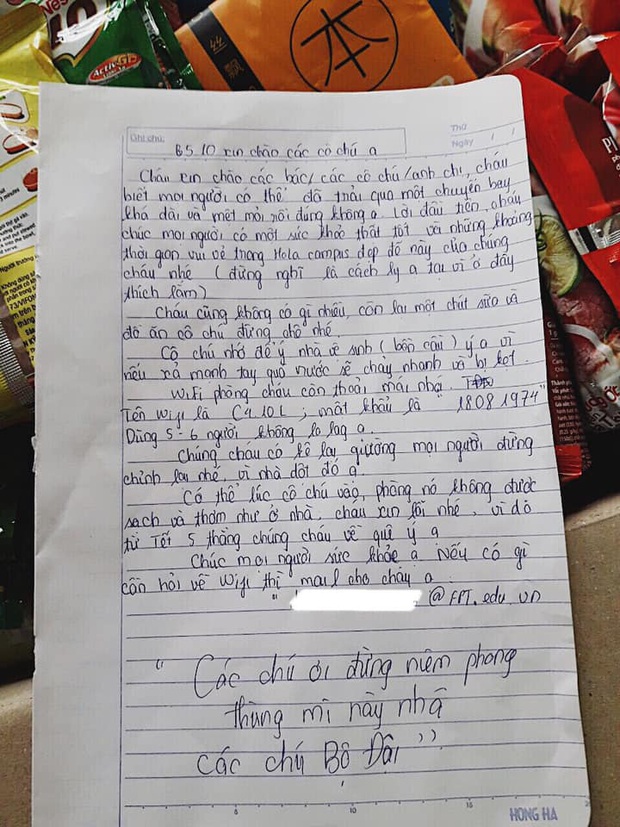 Nes
ACTIV-GO
本
Ghi chú:
Thứ
Ngày / /
B5.10 xin chào các cô chú ạ
Cháu xin chào các bác/ các cô chú/anh chị, cháu
biết mọi người có thể đã trải qua một chuyến bay
khá dài và mệt mỏi rồi đúng không ạ. Lời đầu tiên, cháu
chúc mọi người có một sức khoẻ thật tốt với những khoảng
thời gian vui vẻ trong Hola campus đẹp đẽ này của chúng
cháu nhé (đừng nghĩ là cách ly ạ tại vì ở đây
thích lắm)
Cháu cũng không có gì nhiều, còn lại một chút sữa và
đồ ăn cô chú đừng chê nhé
Cô chú nhớ để ý nhà vệ sinh (bồn cầu) ý ạ vì
nếu xả mạnh tay quá nước sẽ chảy nhanh và bị kẹt.
Wifi phòng cháu còn thoải mái nhá.
Tên wifi là C410L; mật khẩu là "18081974"
Dùng 5-6 người không lo lag ạ.
Chúng cháu có kê lại giường mọi người đừng
chỉnh lại nhé, vì nhà dột đó ạ
Có thể lúc cô chú vào, phòng nó không được
sạch và thơm như ở nhà, cháu xin lỗi nhé, vì do
từ Tết 5 thằng chúng cháu về quê ý ạ
Chúc mọi người sức khỏe ạ Nếu có gì
cần hỏi về Wifi thì mail cho cháu ạ.
"@FPT.edu.vn
"Các chú ơi đừng niêm phong
thùng mì này nhá
các chú Bộ Đội"
5 10 15 20
HONG HA